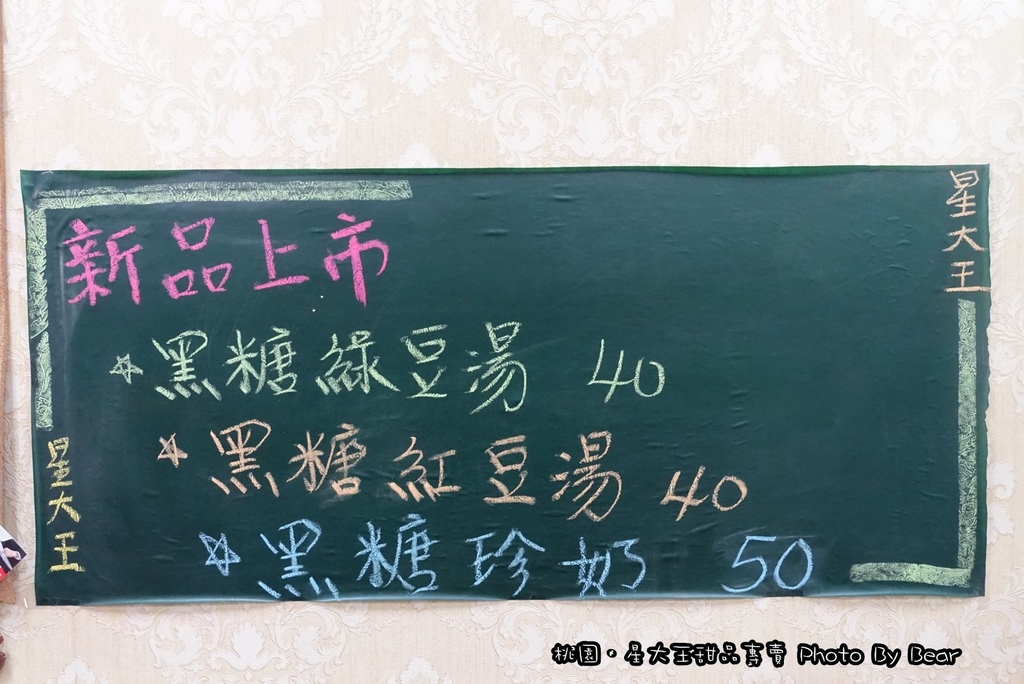 星大王
新品上市
☆黑糖綠豆湯 40
☆黑糖紅豆湯 40
☆黑糖珍奶 50
星大王
桃園。星大王甜品專賣 Photo By Bear